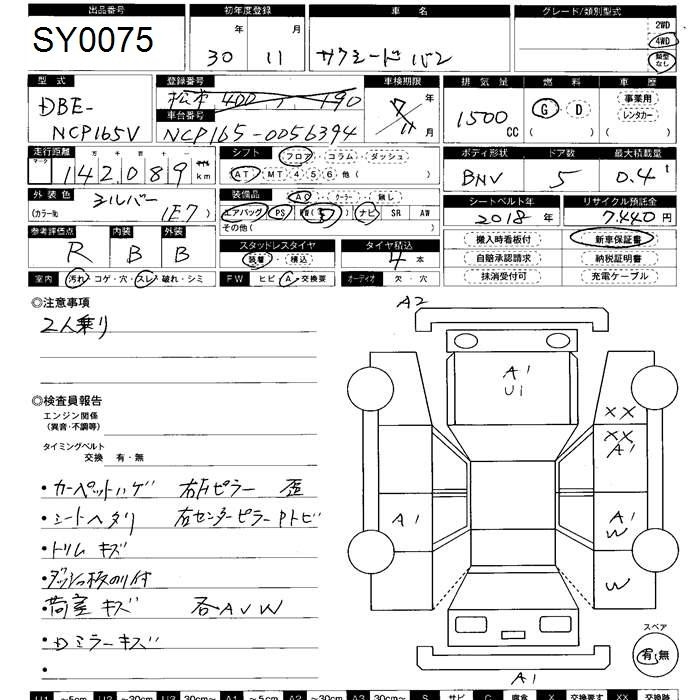 出品番号 初年度登録 車名 グレード/類別型式
SY0075 年 月 2WD
30 11 サクシードバン 4WD
類型なし
型式 登録番号 車検期限 排気量 燃料 車歴
DBE-NCP165V 松本 400 190 年 1500 CC G D 事業用
車台番号 11月 ( ) レンタカー
NCP165-0056394 ( )
走行距離 シフト フロア・コラム・ダッシュ ボディ形状 ドア数 最大積載量
マーク 十 万 千 百 十 一
142,089 km AT MT 4 5 6 他( ) BNV 5 0.4 t
外装色 装備品 AC・クーラー・無し シートベルト年 リサイクル預託金
シルバー エアバッグ PS PW ナビ SR AW 2018年 7,440円
(カラー№ 1E7) その他( )
参考評価点 内装 外装 搬入時看板付 新車保証書
R B B スタッドレスタイヤ タイヤ積込 自賠承認請求 納税証明書
装着・積込 4本 抹消受付可 充電ケーブル
室内 汚れ・コゲ・穴・スレ・破れ・シミ FW ヒビ・A・交換要 オーディオ 欠・穴
◎注意事項 A2
2人乗り
A1
U1
◎検査員報告
エンジン関係
(異音・不調等)
XX
XX
A1
タイミングベルト
交換 有・無
・カーペットハゲ 右Fピラー 歪
・シートヘタリ 右センターピラーPトビ A1 A1
W
・トリム キズ
・ダッシュ板のり付 W
・荷室 キズ 各AVW
・Dミラーキズ スペア
有・無
・ A1
U1 ~5cm U2 ~30cm U3 ~30cm A1 ~5cm A2 ~30cm A3 ~30cm S サビ C 腐食 X 交換要す XX 交換跡